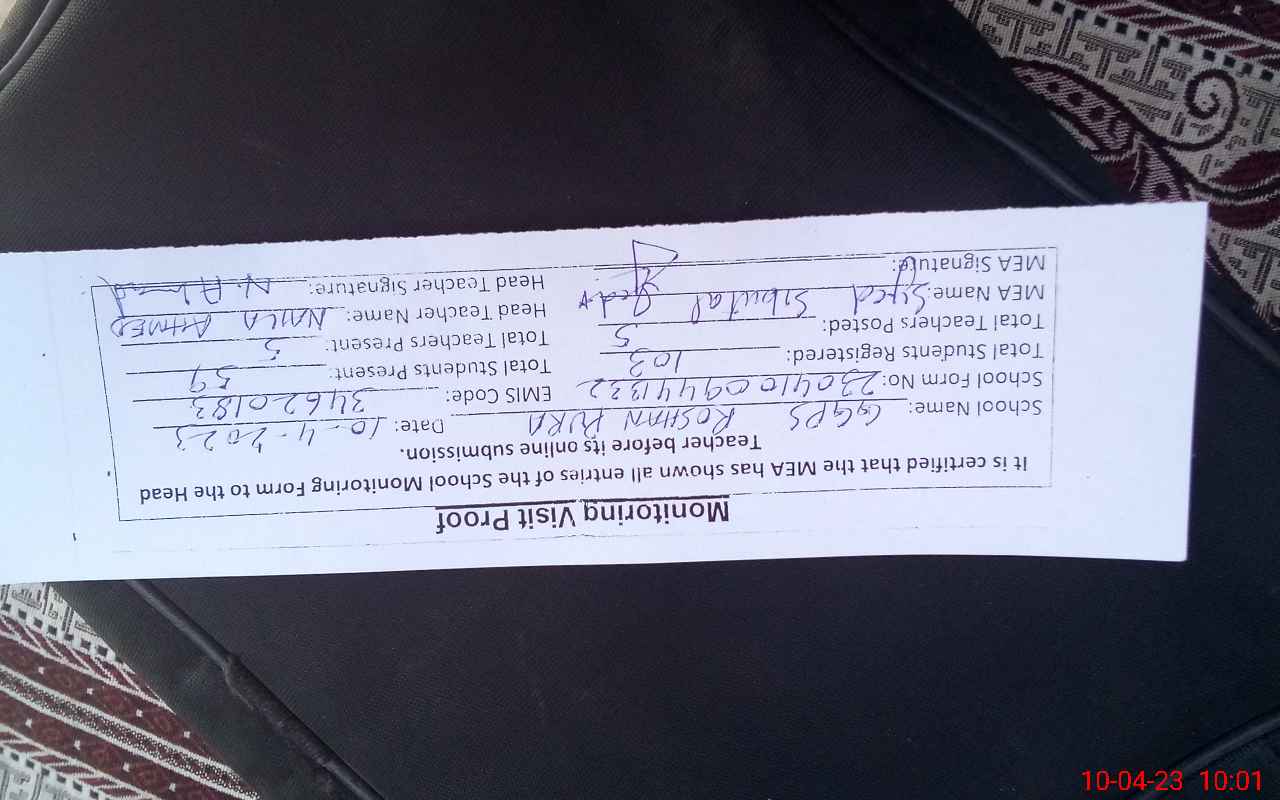 Monitoring Visit Proof
It is certified that the MEA has shown all entries of the School Monitoring Form to the Head
Teacher before its online submission.
School Name: GGPS ROSHAN PURA Date: 10-4-2023
School Form No: 23041009441332 EMIS Code: 34620183
Total Students Registered: 103 Total Students Present: 59
Total Teachers Posted: 5 Total Teachers Present: 5
MEA Name: Syed Sibutal Head Teacher Name: NAILA AHMED
MEA Signature: Head Teacher Signature: N. Ahmed
10-04-23 10:01